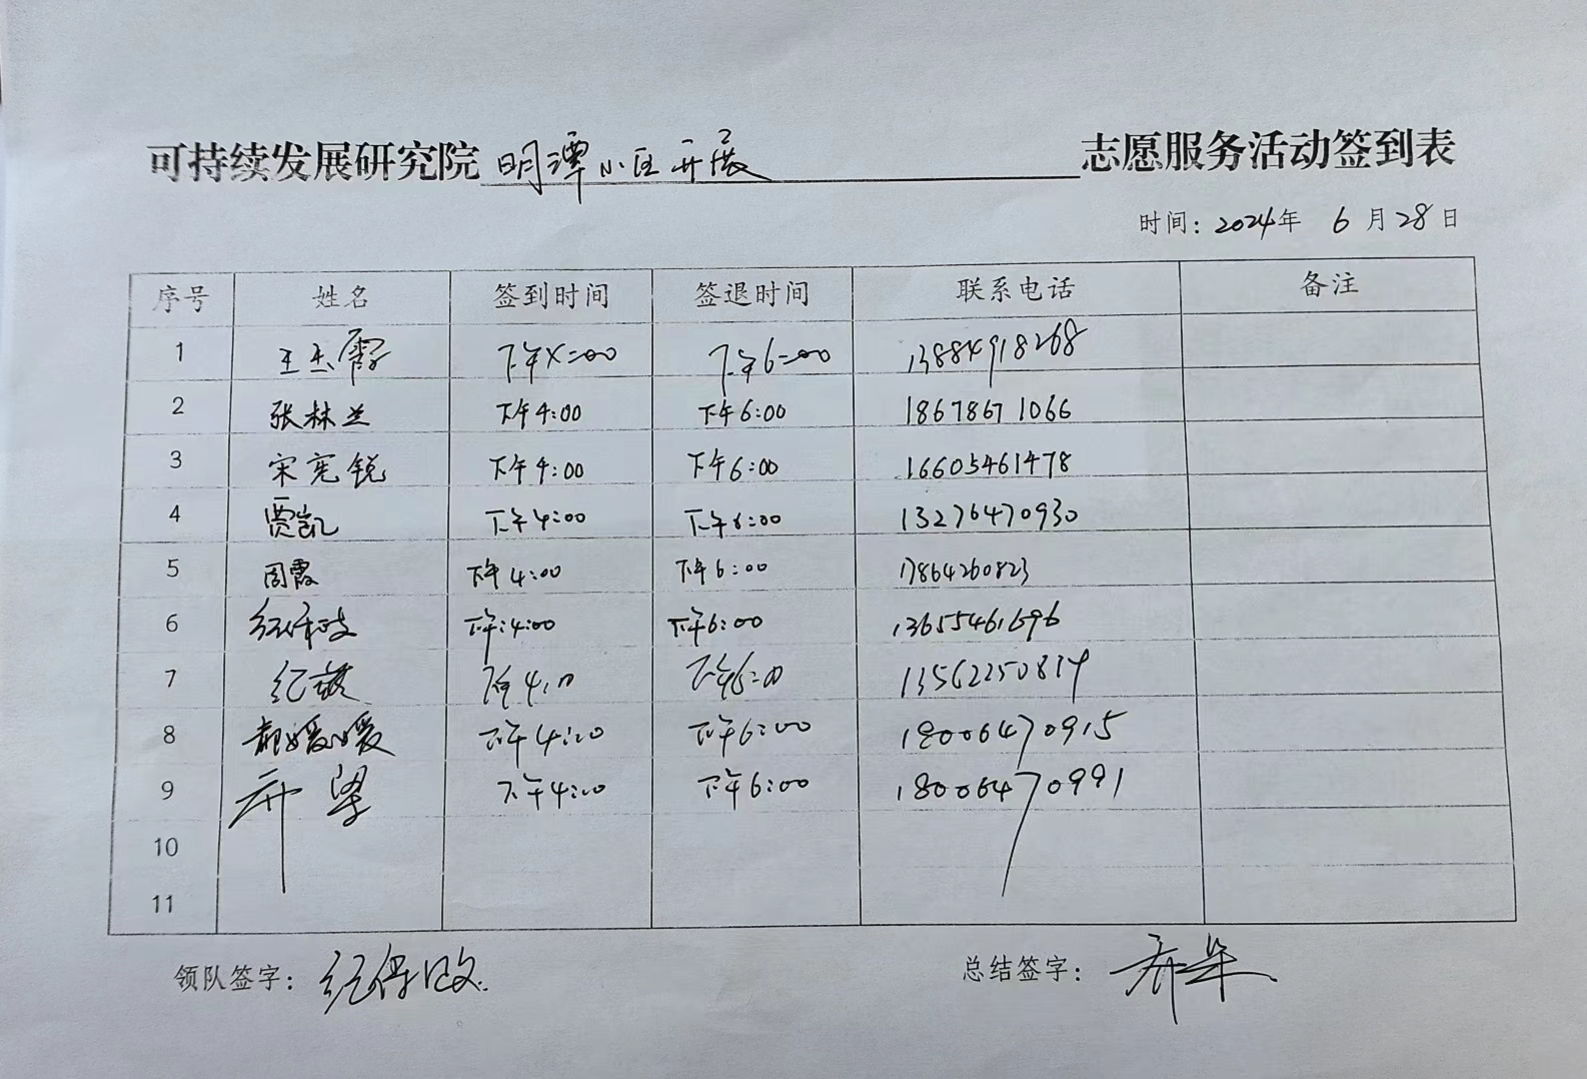 可持续发展研究院 明潭小区开展 志愿服务活动签到表
时间: 2024年 6月28日
序号 姓名 签到时间 签退时间 联系电话 备注
1 王玉霞 下午4:00 下午6:00 13884918268
2 张林兰 下午4:00 下午6:00 18678671066
3 宋宪锐 下午4:00 下午6:00 16605461478
4 贾凯 下午4:00 下午6:00 13276470930
5 周霞 下午4:00 下午6:00 17864260823
6 下午:4:00 下午6:00 13655461696
7 下午6:00 13562250814
8 媛媛 下午4:00 下午6:00 18006470915
9 下午4:00 下午6:00 18006470991
10
11
领队签字: 总结签字: